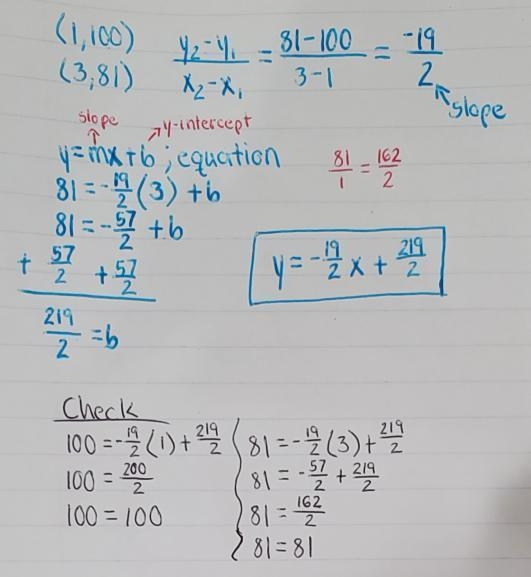 (1,100)
(3,81)
y₂-y₁/x₂-x₁ = 81-100/3-1 = -19/2
slope
slope
y-intercept
y=mx+b ; equation
81=-19/2(3)+b
81=-57/2+b
+ 57/2 +57/2
219/2=b
81/1=162/2
y=-19/2x+219/2
Check
100=-19/2(1)+219/2
100=200/2
100=100
81=-19/2(3)+219/2
81=-57/2+219/2
81=162/2
81=81